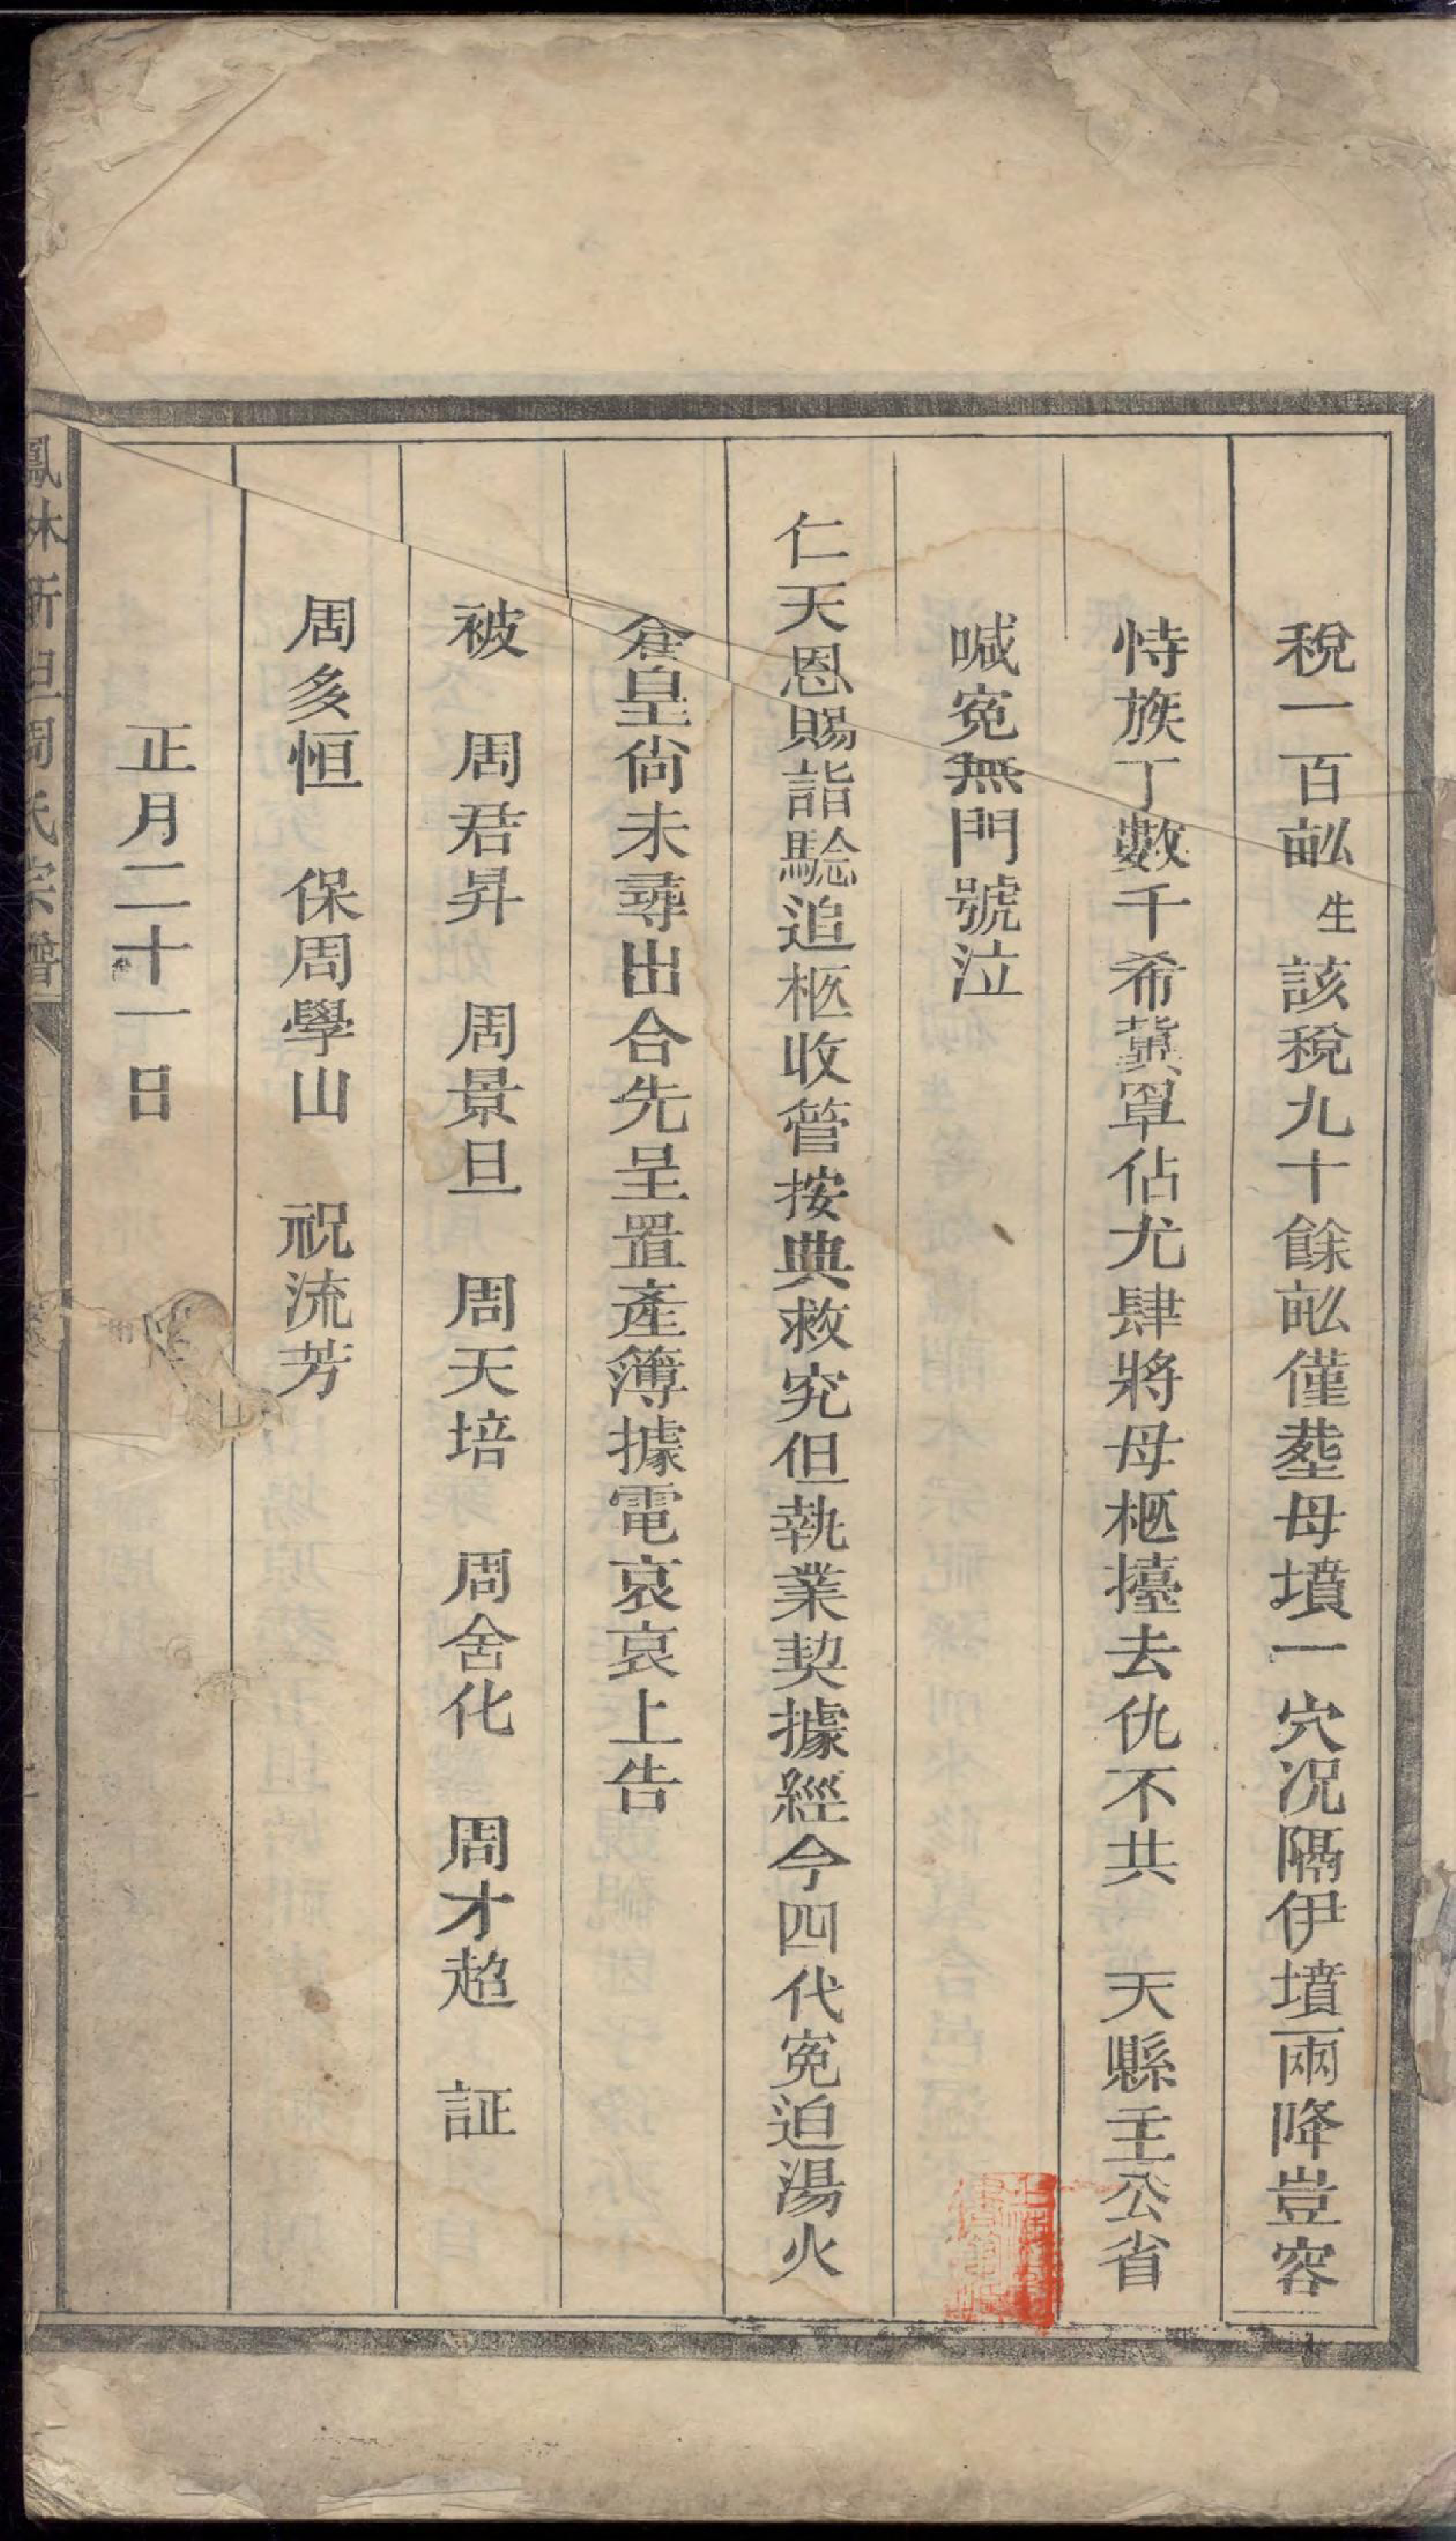 稅一百畆生該稅九十餘畆僅塟母墳一穴况隔伊墳兩降豈容
恃族丁數千希冀罩佔尤肆將母柩擡去仇不共　天縣主公省
喊寃無門號泣
仁天恩賜詣騐追柩收管按典救究但執業契據經今四代寃迫湯火
倉皇尙未尋出合先呈置產簿據電哀哀上告
被　周君昇　周景旦　周天培　周舍化　周才超　証
周多恒　保周學山　祝流芳
正月二十一日
鳳林新旦周氏宗譜